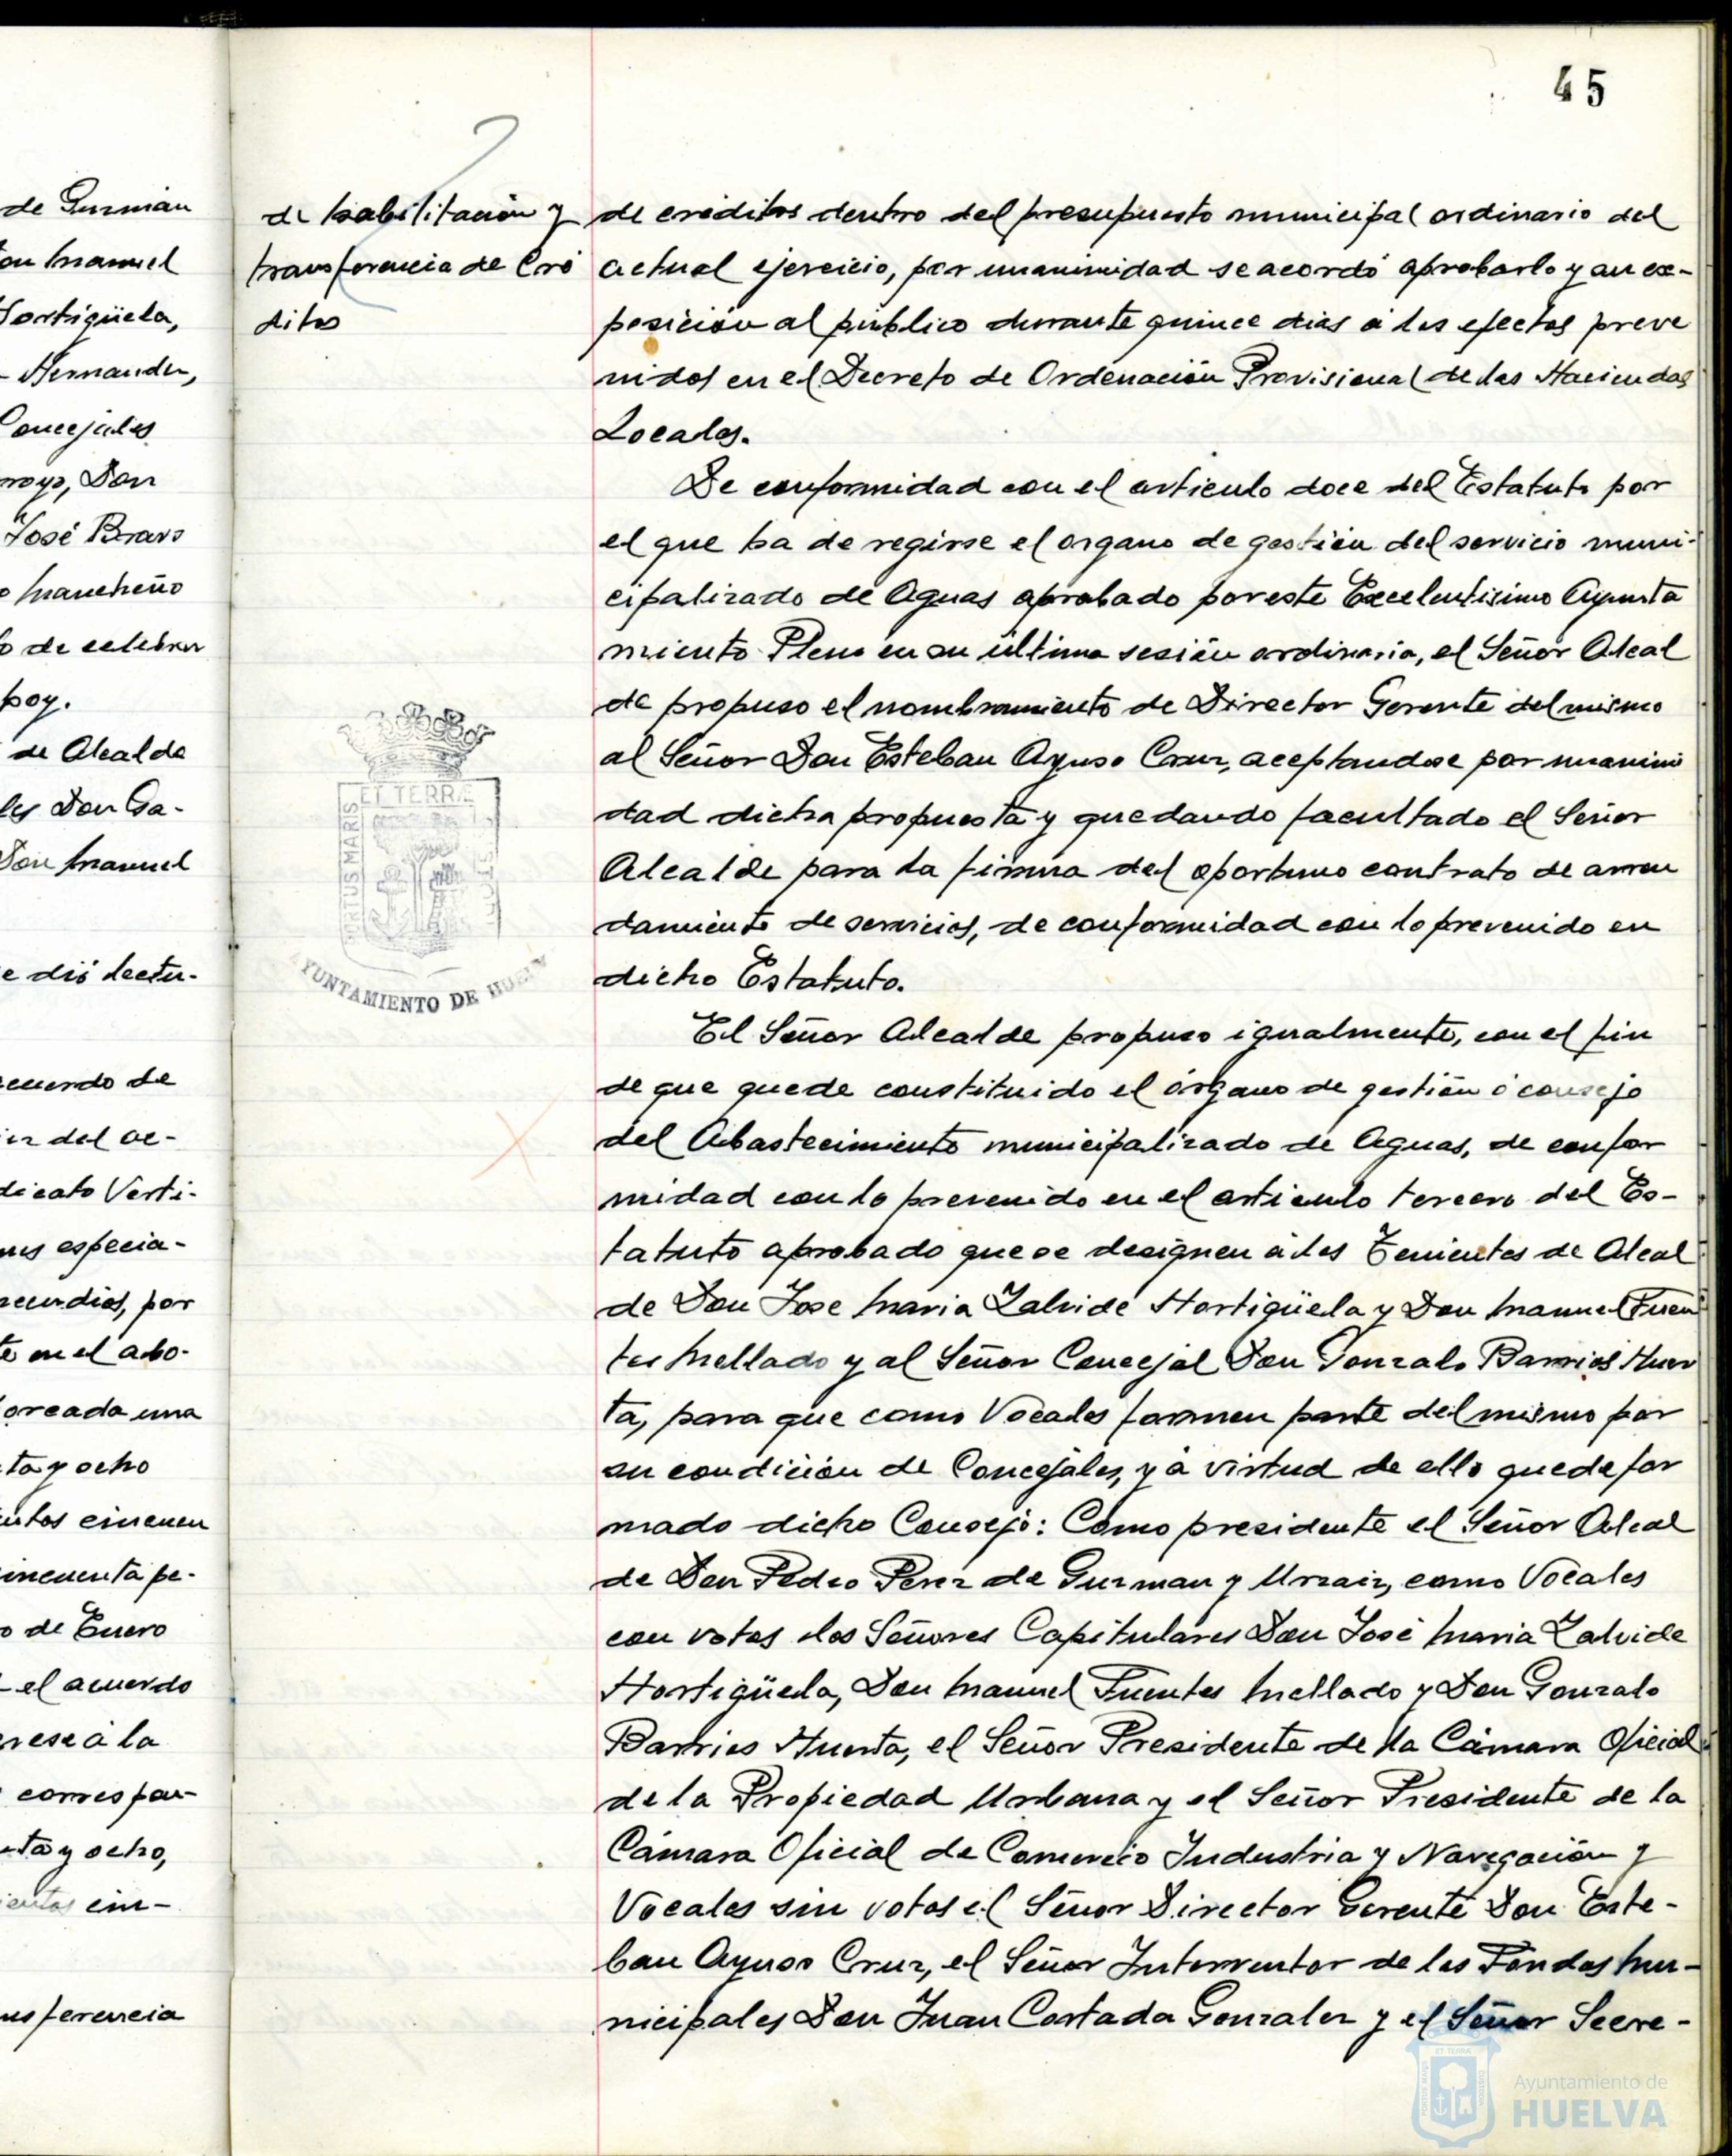 45
de Guzmán
on Manuel
Hortigüela,
Hernandez,
Concejales
rroyo, Don
José Bravo
o Mancheño
o de celebrar
hoy.
de Alcalde
les Don Ga-
Don Manuel
e dió lectu-
cuerdo de
del ac-
dicato Verti-
especia-
cendios, por
te en el abo-
una
ta y ocho
cincuen
incuenta pe-
o de Enero
el acuerdo
rese á la
correspon-
nta y ocho,
ientas cin-
nsferencia
de habilitación y
transferencia de Cré
ditos
de créditos dentro del presupuesto municipal ordinario del
actual ejercicio, por unanimidad se acordó aprobarlo y su ex-
posición al público durante quince dias á los efectos preve
nidos en el Decreto de Ordenación Provisional de las Haciendas
Locales.
De conformidad con el articulo doce del Estatuto por
el que ha de regirse el organo de gestión del servicio muni-
cipalizado de Aguas aprobado por este Excelentisimo Ayunta
miento Pleno en su última sesión ordinaria, el Señor Alcal
de propuso el nombramiento de Director Gerente del mismo
al Señor Don Esteban Ayuso Cruz, aceptandose por unanimi
dad dicha propuesta y quedando facultado el Señor
Alcalde para la firma del oportuno contrato de arren
damiento de servicios, de conformidad con lo prevenido en
dicho Estatuto.
El Señor Alcalde propuso igualmente, con el fin
de que quede constituido el órgano de gestión ó consejo
del Abastecimiento municipalizado de Aguas, de confor
midad con lo prevenido en el articulo tercero del Es-
tatuto aprobado que se designen á los Tenientes de Alcal
de Don Jose Maria Zalvide Hortigüela y Don Manuel Fuen
tes Mellado y al Señor Concejal Don Gonzalo Barrios Huer
ta, para que como Vocales formen parte del mismo por
su condición de Concejales, y á virtud de ello quede for
mado dicho Consejo: Como presidente el Señor Alcal
de Don Pedro Perez de Guzman y Urzaiz, como Vocales
con votos los Señores Capitulares Don José Maria Zalvide
Hortigüela, Don Manuel Fuentes Mellado y Don Gonzalo
Barrios Huerta, el Señor Presidente de la Cámara Oficial
de la Propiedad Urbana y el Señor Presidente de la
Cámara Oficial de Comercio Industria y Navegación y
Vocales sin votos el Señor Director Gerente Don Este-
ban Ayuso Cruz, el Señor Interventor de los Fondos Mu-
nicipales Don Juan Cortada Gonzalez y el Señor Secre-
PORTUS MARIS
ET TERRÆ
AYUNTAMIENTO DE HUELV
Ayuntamiento de
HUELVA